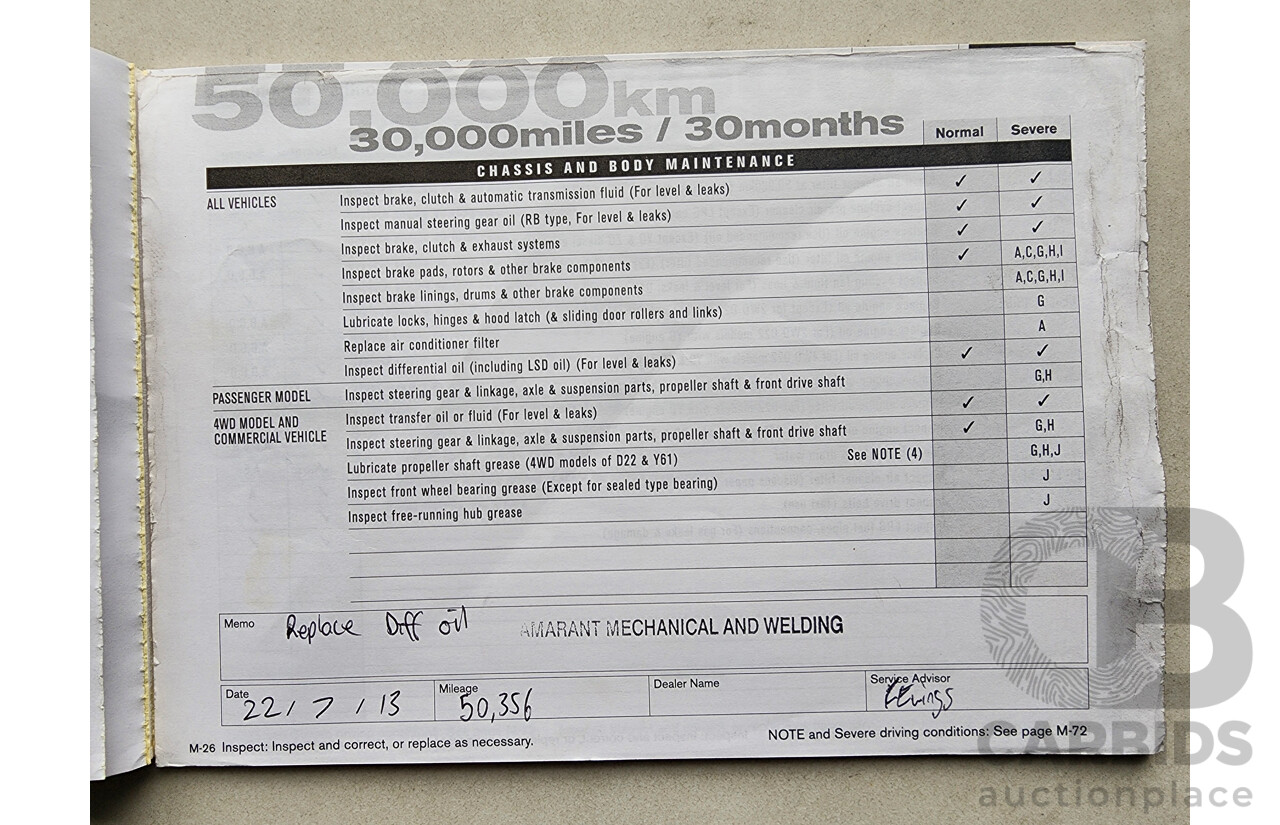 50,000km
30,000miles / 30months
Normal Severe
CHASSIS AND BODY MAINTENANCE
ALL VEHICLES Inspect brake, clutch & automatic transmission fluid (For level & leaks) ✓ ✓
Inspect manual steering gear oil (RB type, For level & leaks) ✓ ✓
Inspect brake, clutch & exhaust systems ✓ ✓
Inspect brake pads, rotors & other brake components ✓ A,C,G,H,I
Inspect brake linings, drums & other brake components A,C,G,H,I
Lubricate locks, hinges & hood latch (& sliding door rollers and links) G
Replace air conditioner filter A
Inspect differential oil (including LSD oil) (For level & leaks) ✓ ✓
PASSENGER MODEL Inspect steering gear & linkage, axle & suspension parts, propeller shaft & front drive shaft G,H
4WD MODEL AND Inspect transfer oil or fluid (For level & leaks) ✓ ✓
COMMERCIAL VEHICLE Inspect steering gear & linkage, axle & suspension parts, propeller shaft & front drive shaft ✓ G,H
Lubricate propeller shaft grease (4WD models of D22 & Y61) See NOTE (4) G,H,J
Inspect front wheel bearing grease (Except for sealed type bearing) J
Inspect free-running hub grease J
Memo Replace Diff oil AMARANT MECHANICAL AND WELDING
Date 22 / 7 / 13 Mileage 50,356 Dealer Name Service Advisor
M-26 Inspect: Inspect and correct, or replace as necessary. NOTE and Severe driving conditions: See page M-72
CB
CARBIDS
auctionplace